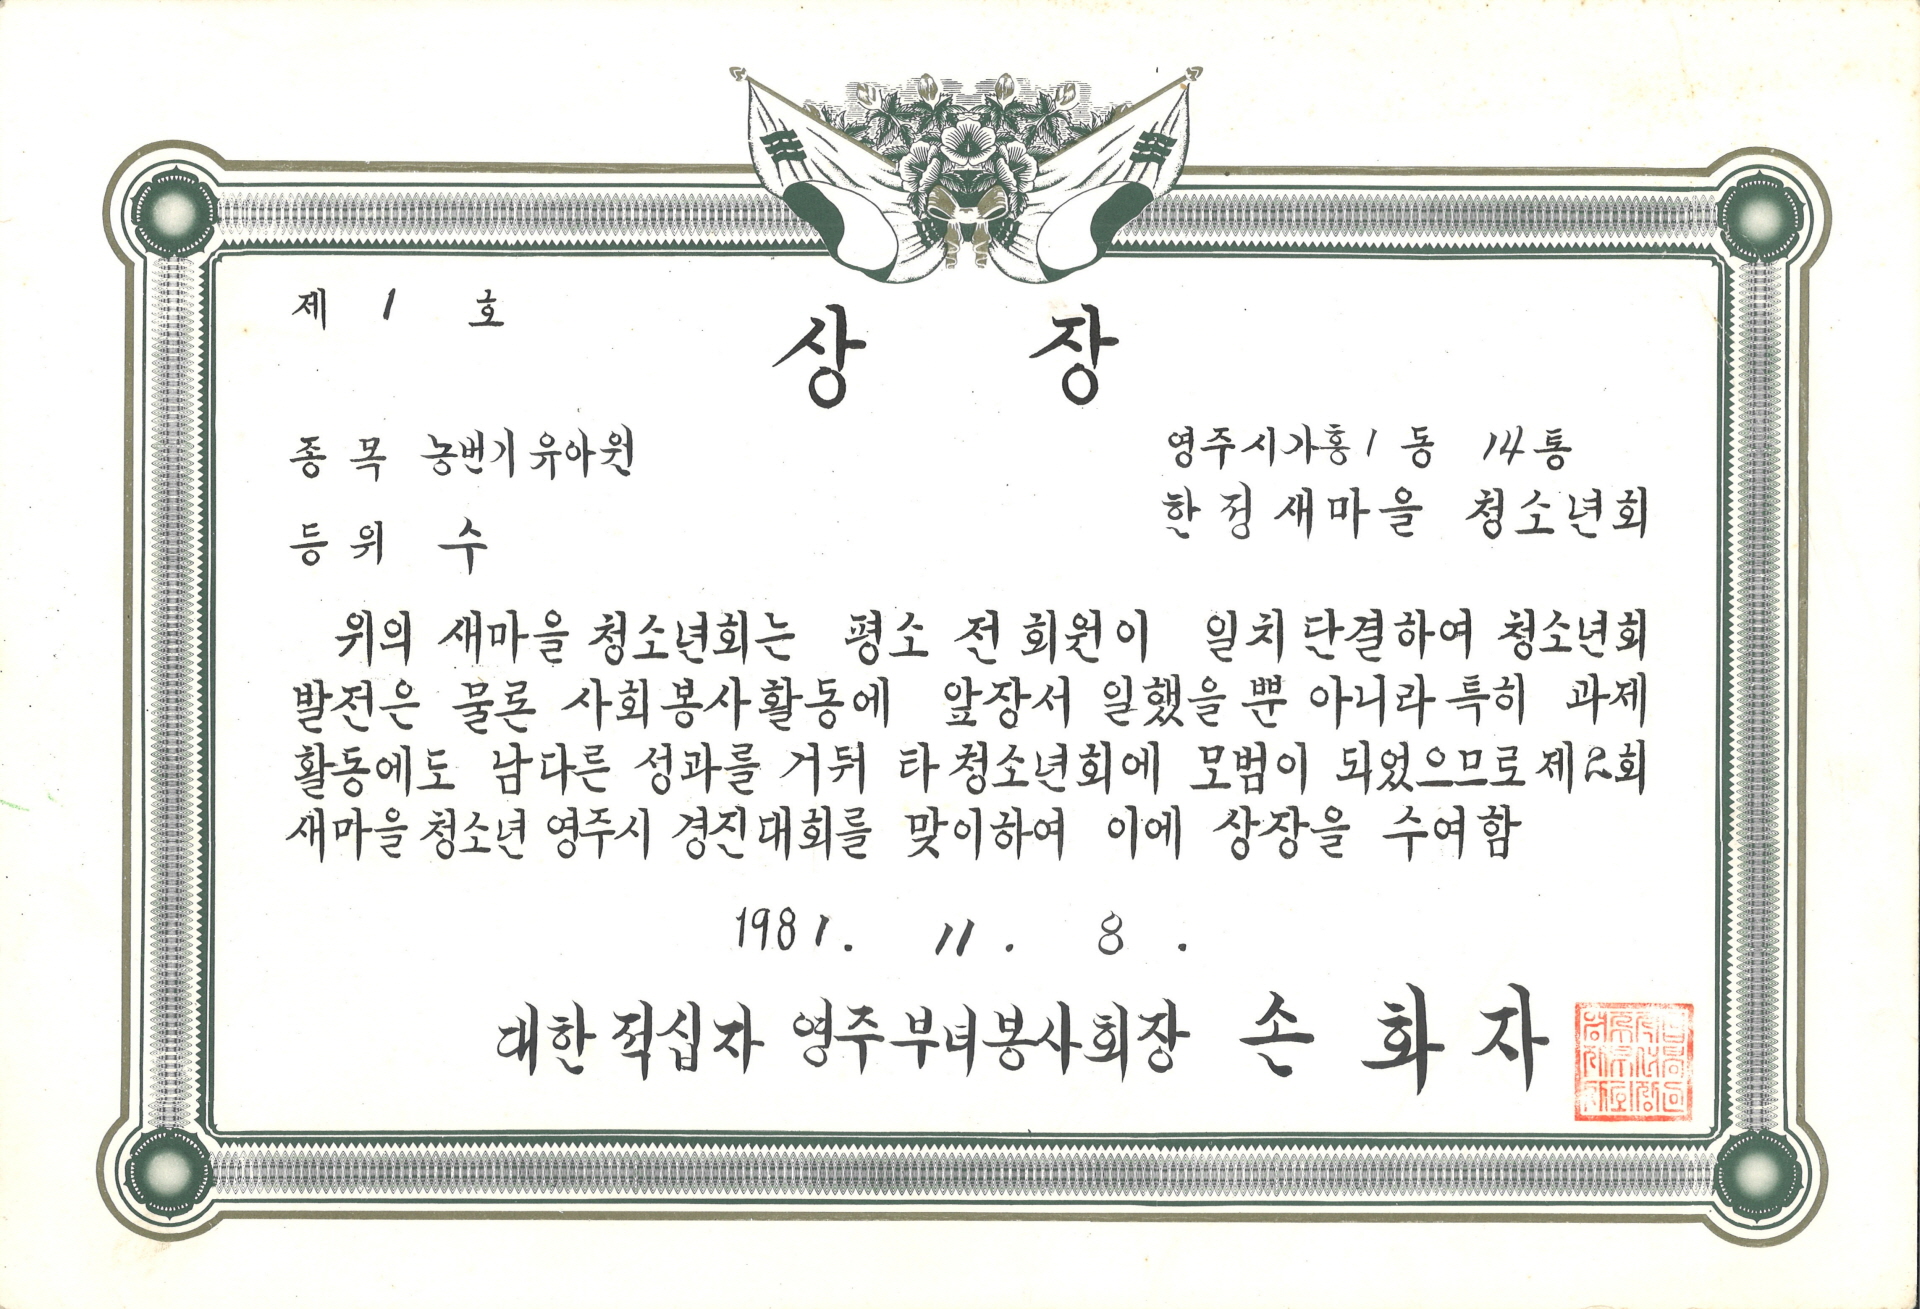 제 1 호
상 장
종 목 농번기 유아원
등 위 수
영주시 가흥1동 14통
한정 새마을 청소년회
위의 새마을 청소년회는 평소 전 회원이 일치 단결하여 청소년회
발전은 물론 사회봉사활동에 앞장서 일했을 뿐 아니라 특히 과제
활동에도 남다른 성과를 거둬 타 청소년회에 모범이 되었으므로 제2회
새마을 청소년 영주시 경진대회를 맞이하여 이에 상장을 수여함
1981. 11. 8.
대한적십자 영주부녀봉사회장 손 화 자